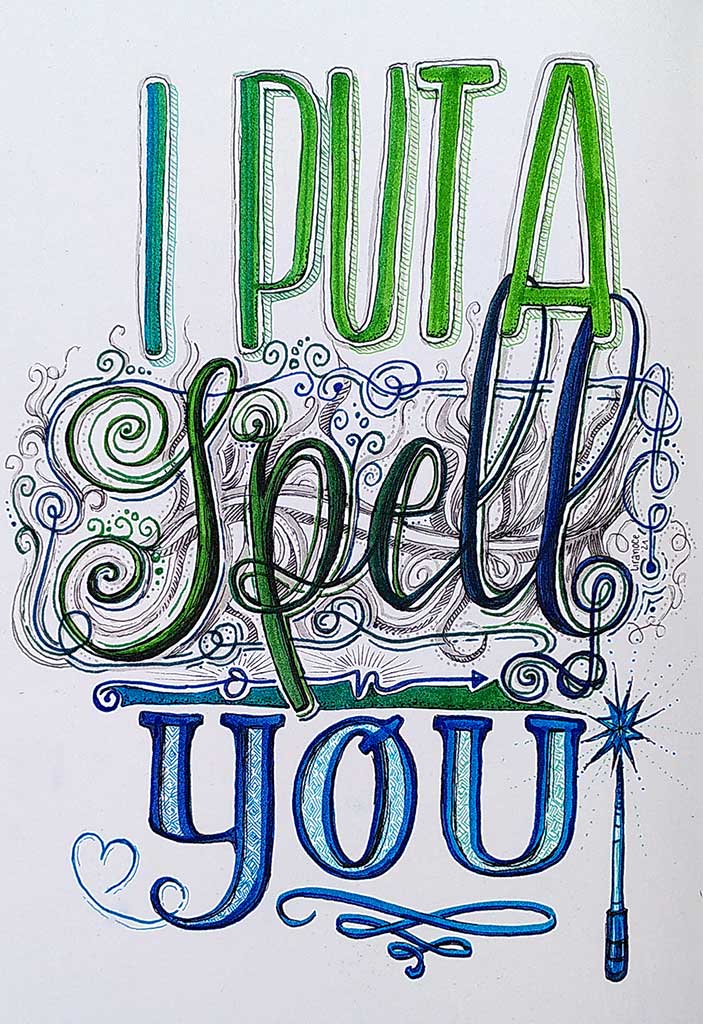 I PUT A
Spell
on
YOU